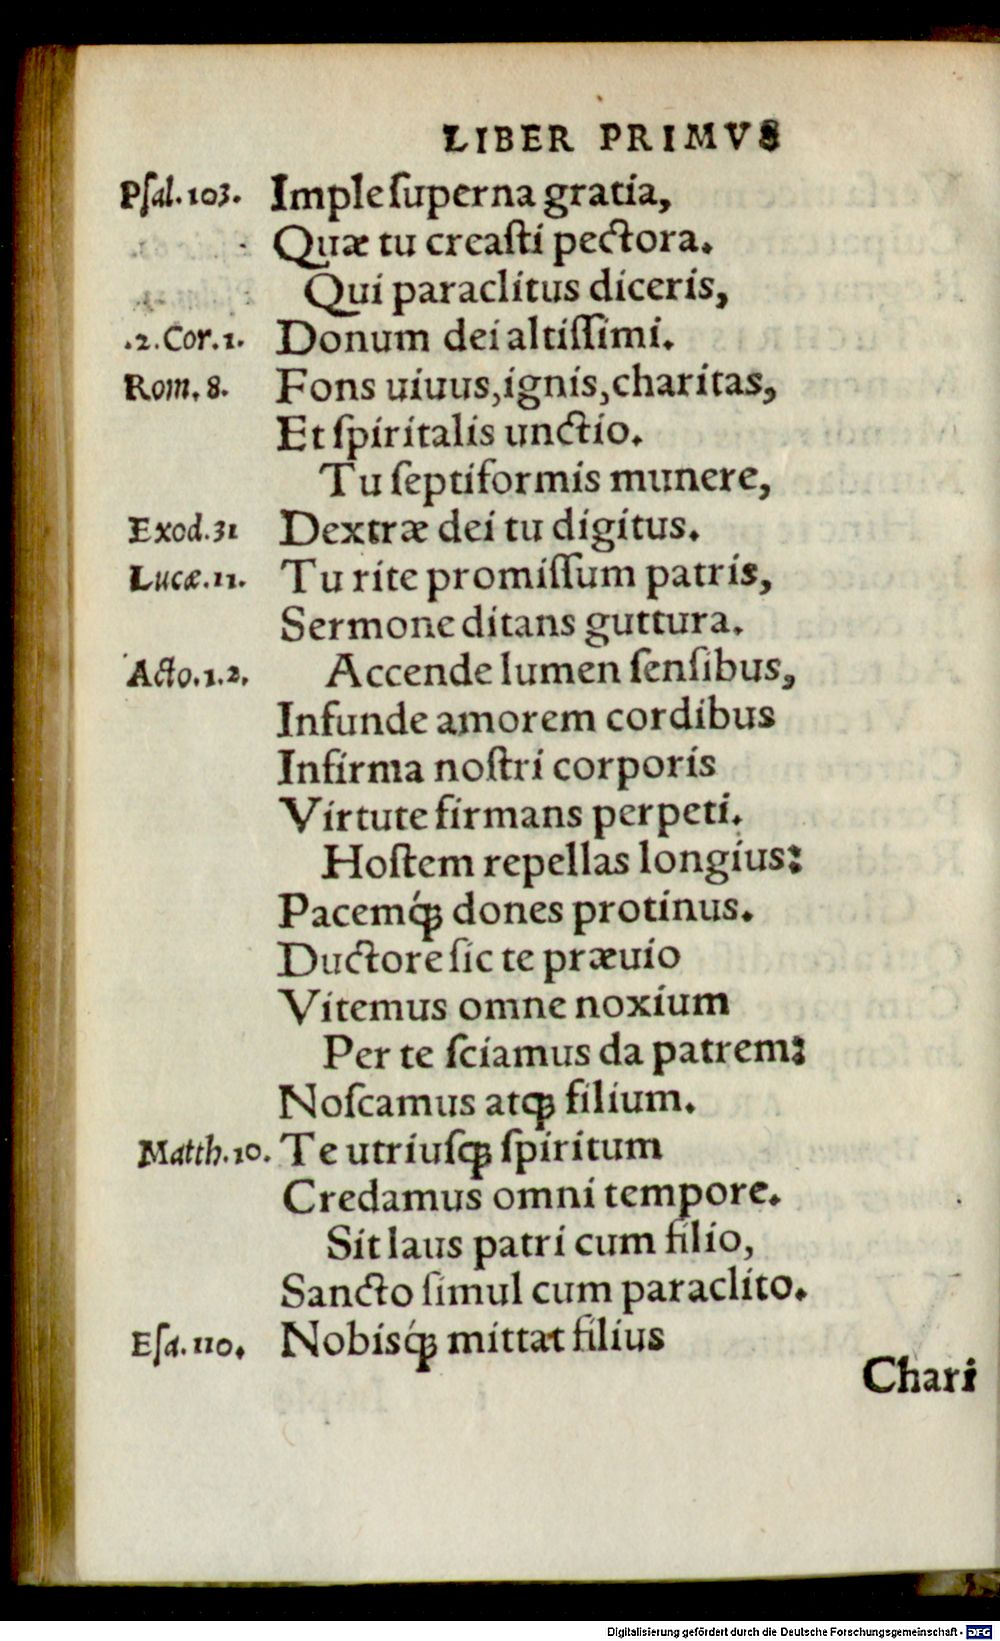 LIBER PRIMVS
Pſal.103. Imple ſuperna gratia,
Quæ tu creaſti pectora.
Qui paraclitus diceris,
.2.Cor.1. Donum dei altiſſimi.
Rom.8. Fons uiuus,ignis,charitas,
Et ſpiritalis unctio.
Tu ſeptiformis munere,
Exod.31 Dextræ dei tu digitus.
Lucæ.11. Tu rite promiſſum patris,
Sermone ditans guttura.
Acto.1.2. Accende lumen ſenſibus,
Infunde amorem cordibus
Infirma noſtri corporis
Virtute firmans perpeti.
Hoſtem repellas longius:
Pacemq́ꝫ dones protinus.
Ductore ſic te præuio
Vitemus omne noxium
Per te ſciamus da patrem:
Noſcamus atqꝫ filium.
Matth.10. Te utriuſqꝫ ſpiritum
Credamus omni tempore.
Sit laus patri cum filio,
Sancto ſimul cum paraclito.
Eſa.110. Nobisq́ꝫ mittat filius
Chari
Digitalisierung gefördert durch die Deutsche Forschungsgemeinschaft - DFG